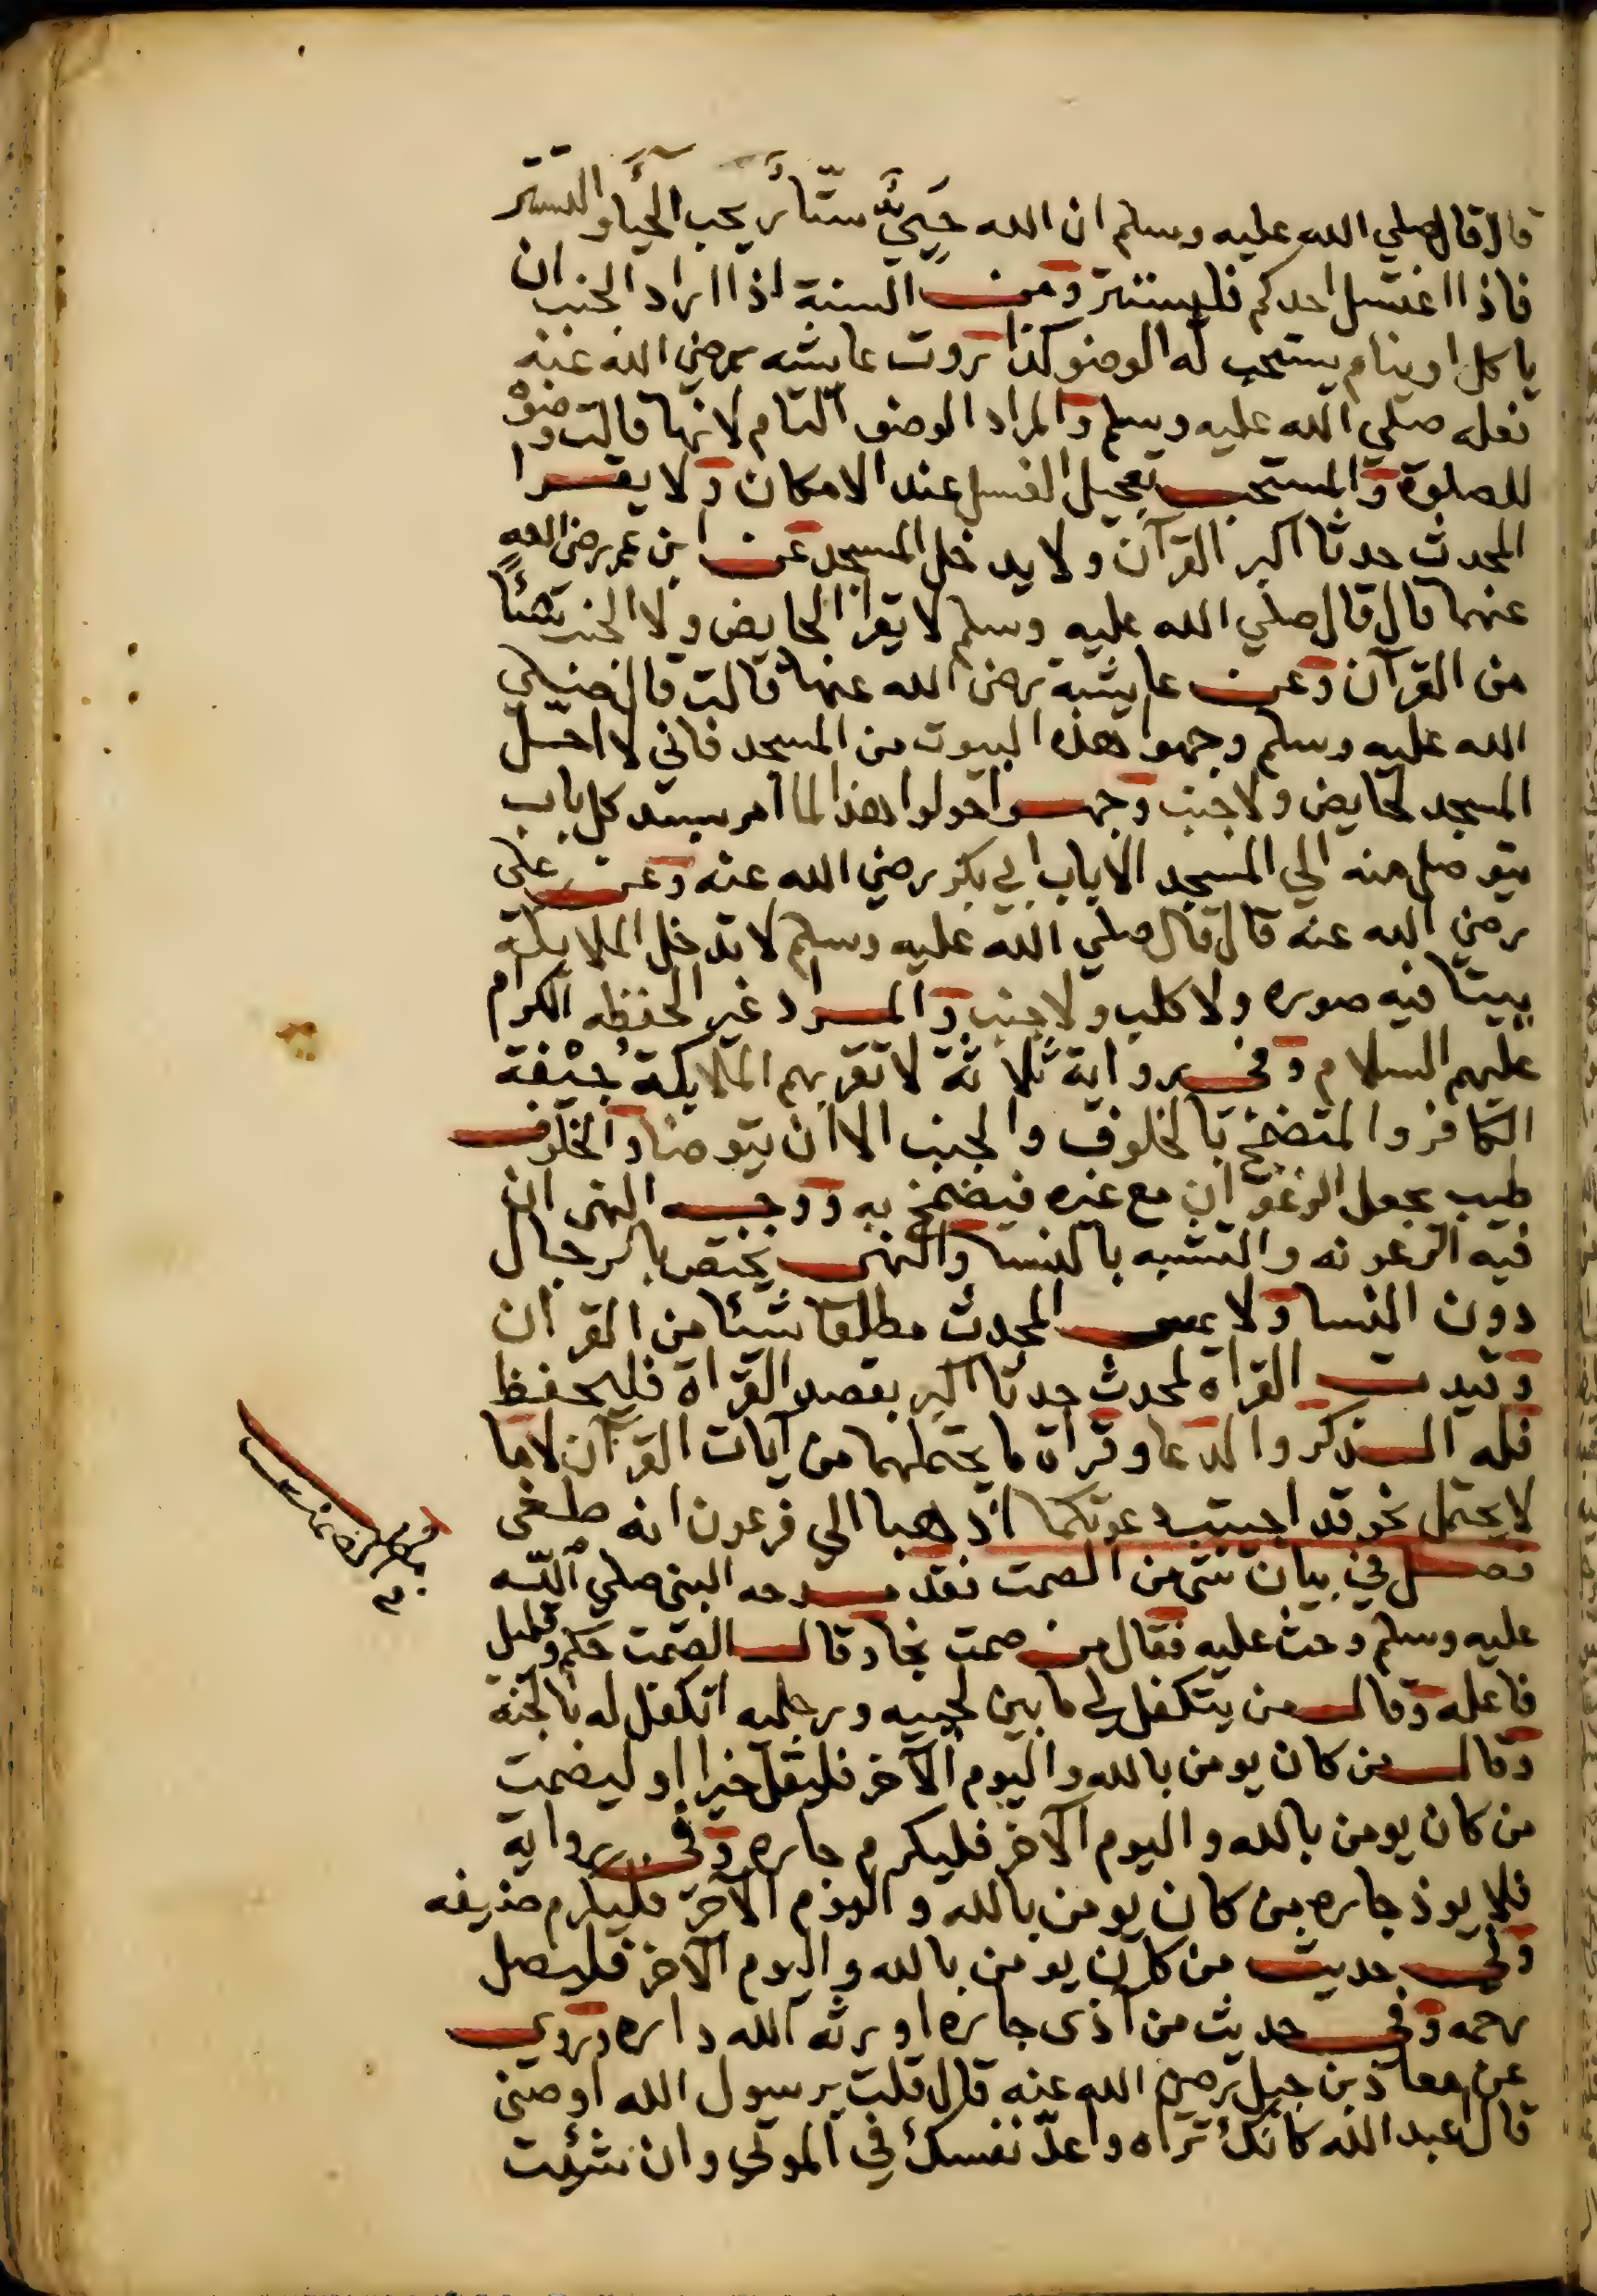 قال قال صلي الله عليه وسلم ان الله حَيِيٌّ ستّار يحب الحياء والتستر
فاذا اغتسل احدكم فليستتر ومن السنة اذا اراد الجنب ان
ياكل او ينام يستحب له الوضو كذا روت عايشه رضي الله عنه
فعله صلي الله عليه وسلم والمراد الوضو التام لانها قالت وضوْه
للصلوة والمستحب تعجيل الغسل عند الامكان ولا يقرا
المحدث حدثا اكبر القرآن ولا يدخل المسجد عن ابن عمر رضي الله
عنهما قال قال صلي الله عليه وسلم لا تقرا الحايض ولا الجنب شيئًا
من القرآن وعن عايشة رضي الله عنها قالت قال صلي
الله عليه وسلم وجهوا هذه البيوت من المسجد فاني لا احل
المسجد لحايض ولا جنب وجهوا حولوا هذا لما امر بسد كل باب
يتوصل منه الي المسجد الا باب ابي بكر رضي الله عنه وعن علي
رضي الله عنه قال قال صلي الله عليه وسلم لا تدخل الملايكة
بيتا فيه صوره ولا كلب ولا جنب والمراد غير الحفظه الكرام
عليهم السلام وفي رواية ثلاثة لا تقربهم الملايكة جيْفة
الكافر والمتضمخ بالخلوف والجنب الا ان يتوضا والخلوف
طيب يجعل الزعفران مع غيره فيضمخ به ووجه النهي ان
فيه الرعونه والتشبه بالنسا والنهي يختص بالرجال
دون النسا ولا يمس المحدث مطلقا شئا من القرآن
وقيدت القراه لمحدث حدثا اكبر بقصد القراة فليحفظ
فله الذكر والدعا وقراة ما يحتملهما من آيات القرآن لا ما
لا يحتمل نحو قد اجيبت دعوتكما اذهبا الي فرعون انه طغى
فصل في بيان شي من الصمت فقد مدحه النبي صلي الله
عليه وسلم وحث عليه فقال من صمت نجا وقال الصمت حكم وقليل
فاعله وقال من يتكفل لي ما بين لحييه ورجليه اتكفل له بالجنة
وقال من كان يومن بالله واليوم الآخر فليقل خيرا او ليصمت
من كان يومن بالله واليوم الآخر فليكرم جاره وفي رواية
فلا يوذ جاره من كان يومن بالله واليوم الآخر فليكرم ضيفه
وفي حديث من كان يومن بالله واليوم الآخر فليصل
رحمه وفي حديث من آذى جاره اورثه الله داره وروي
عن معاذ بن جبل رضي الله عنه قال قلت يرسول الله اوصني
قال اعبد الله كانك تراه واعدّ نفسك في الموتي وان شئت